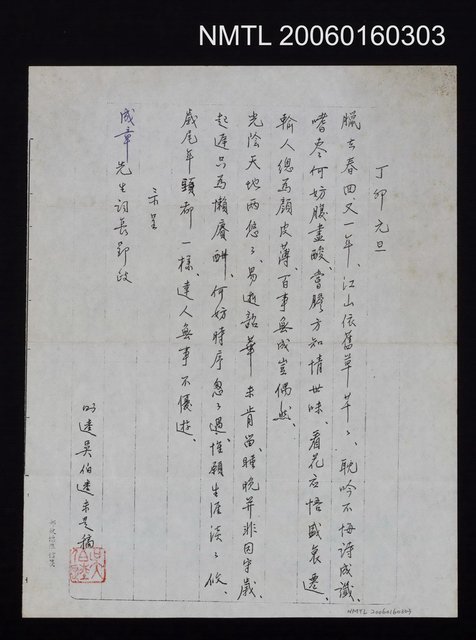 NMTL 20060160303
丁卯元旦
臘去春回又一年、江山依舊草芊々、耽吟不悔詩成讖、
嗜寒何妨腹盡酸、嘗膠方知情世味、看花應悟盛衰遷、
輸人總為顏皮薄、百事無成豈偶然、
光陰天地兩悠々、易逝韶華未肯留、睡晚并非因守歲、
起遲只為懶賡酬、何妨時序忽々過、惟願生涯淡々修、
歲尾年頭都一樣、達人無事不優游、
呈
成章先生詞長郢政
吳伯達未是稿
NMTL 20060160303